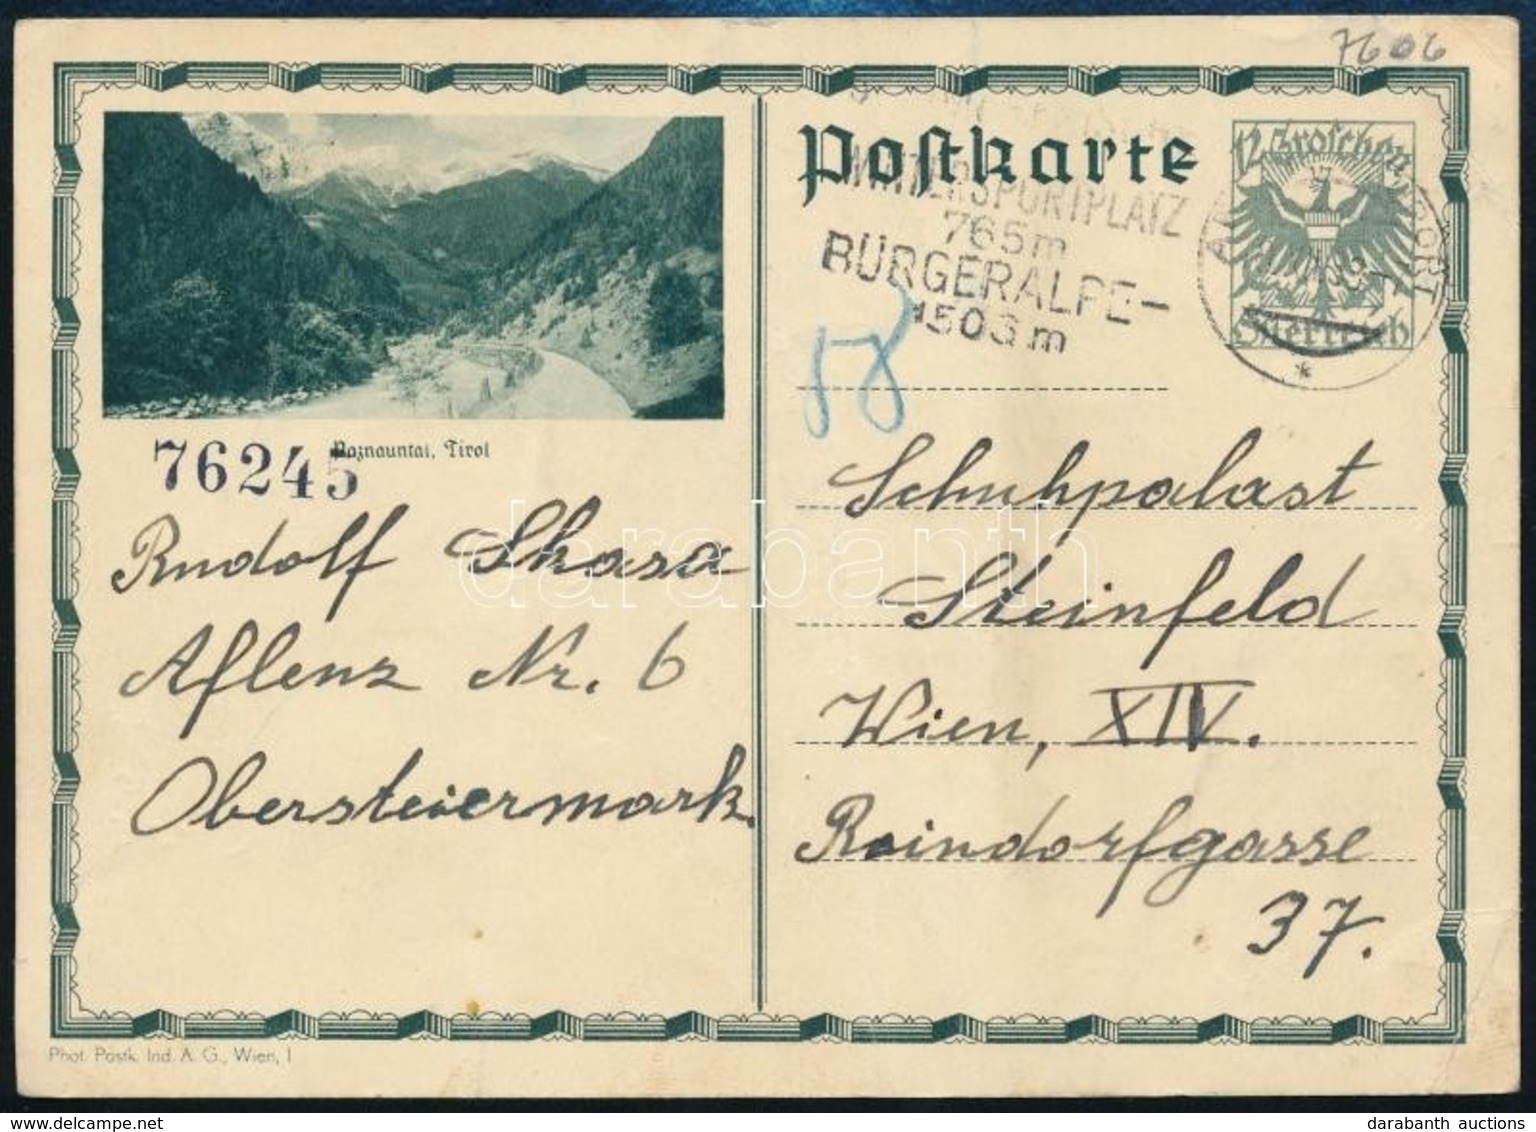 7606
Postkarte
12 Groschen
Österreich
WINTERSPORTPLATZ
765m
BÜRGERALPE-
1503m
58
Paznauntal, Tirol
76245
Rudolf Skasa
Aflenz Nr. 6
Obersteiermark.
Schuhpalast
Steinfeld
Wien, XIV.
Reindorfgasse
37.
darabanth
Phot. Postk. Ind. A. G., Wien, I
darabanth auctions